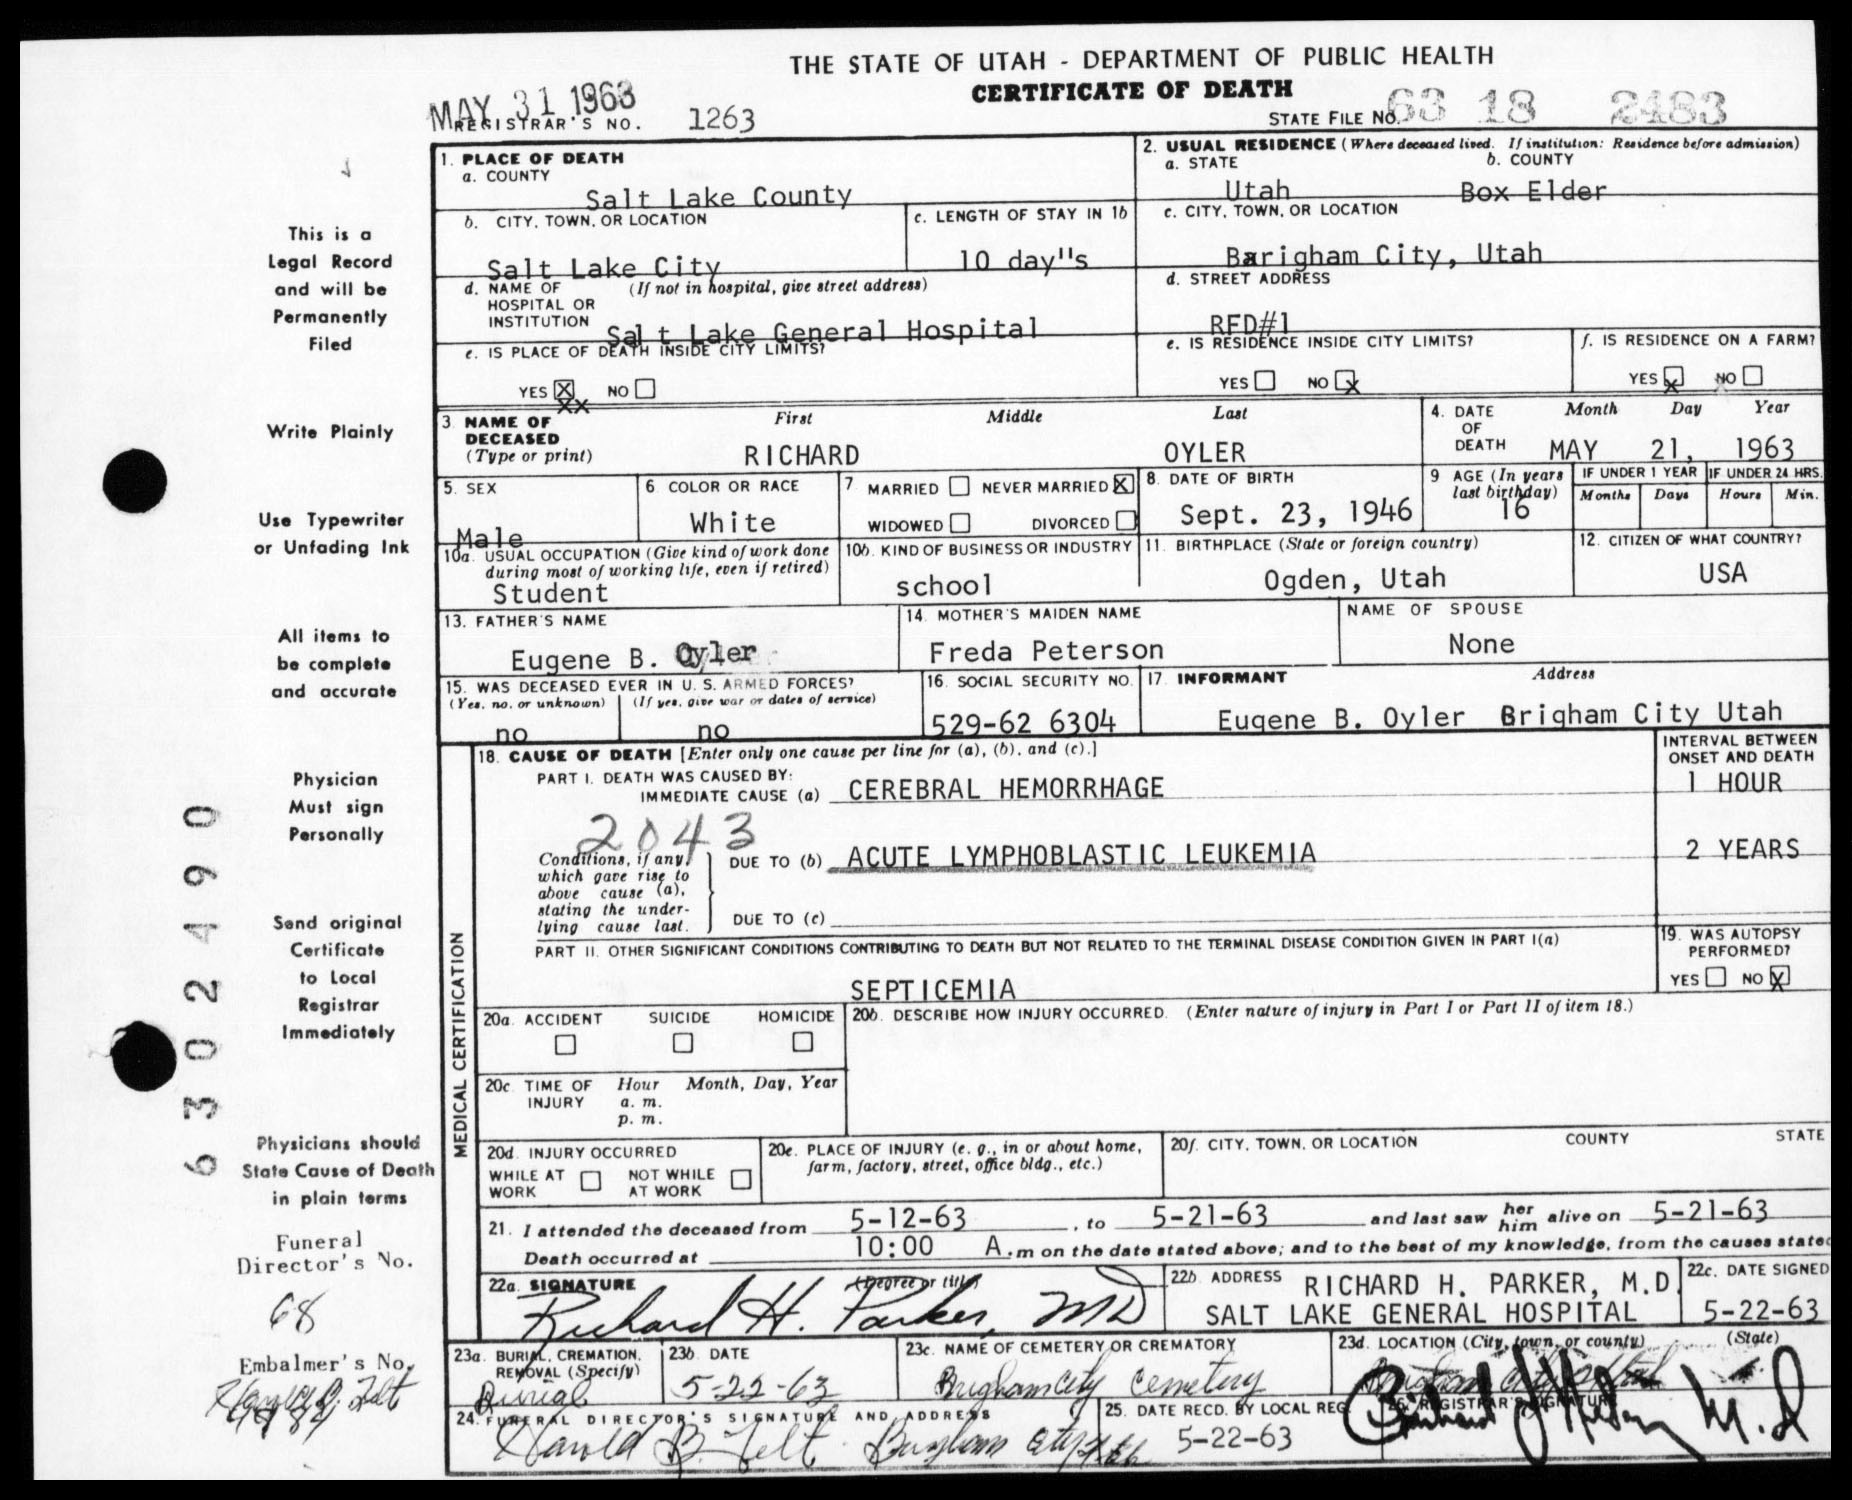 THE STATE OF UTAH - DEPARTMENT OF PUBLIC HEALTH
CERTIFICATE OF DEATH
MAY 31 1963
REGISTRAR'S NO. 1263
STATE FILE NO. 63 18 2483
This is a
Legal Record
and will be
Permanently
Filed
Write Plainly
Use Typewriter
or Unfading Ink
All items to
be complete
and accurate
Physician
Must sign
Personally
Send original
Certificate
to Local
Registrar
Immediately
Physicians should
State Cause of Death
in plain terms
Funeral
Director's No.
68
Embalmer's No.
6302490
1. PLACE OF DEATH
a. COUNTY
Salt Lake County
2. USUAL RESIDENCE (Where deceased lived. If institution: Residence before admission)
a. STATE b. COUNTY
Utah Box Elder
b. CITY, TOWN, OR LOCATION
Salt Lake City
c. LENGTH OF STAY IN 1b
10 day"s
c. CITY, TOWN, OR LOCATION
Barigham City, Utah
d. NAME OF (If not in hospital, give street address)
HOSPITAL OR
INSTITUTION Sal t Lake General Hospital
d. STREET ADDRESS
RFD#1
e. IS PLACE OF DEATH INSIDE CITY LIMITS?
YES X NO
xx
e. IS RESIDENCE INSIDE CITY LIMITS?
YES NO x
f. IS RESIDENCE ON A FARM?
YES x NO
3 NAME OF First Middle Last
DECEASED
(Type or print) RICHARD OYLER
4. DATE Month Day Year
OF
DEATH MAY 21, 1963
5. SEX
Male
6. COLOR OR RACE
White
7. MARRIED NEVER MARRIED X
WIDOWED DIVORCED
8. DATE OF BIRTH
Sept. 23, 1946
9 AGE (In years
last birthday)
16
IF UNDER 1 YEAR
Months Days
IF UNDER 24 HRS.
Hours Min.
10a. USUAL OCCUPATION (Give kind of work done
during most of working life, even if retired)
Student
10b. KIND OF BUSINESS OR INDUSTRY
school
11. BIRTHPLACE (State or foreign country)
Ogden, Utah
12. CITIZEN OF WHAT COUNTRY?
USA
13. FATHER'S NAME
Eugene B. Oyler
14. MOTHER'S MAIDEN NAME
Freda Peterson
NAME OF SPOUSE
None
15. WAS DECEASED EVER IN U. S. ARMED FORCES?
(Yes, no, or unknown) (If yes, give war or dates of service)
no no
16. SOCIAL SECURITY NO.
529-62 6304
17. INFORMANT Address
Eugene B. Oyler Brigham City Utah
MEDICAL CERTIFICATION
18. CAUSE OF DEATH [Enter only one cause per line for (a), (b), and (c).]
INTERVAL BETWEEN
ONSET AND DEATH
PART I. DEATH WAS CAUSED BY:
IMMEDIATE CAUSE (a) CEREBRAL HEMORRHAGE 1 HOUR
2043
Conditions, if any,
which gave rise to
above cause (a),
stating the under-
lying cause last.
DUE TO (b) ACUTE LYMPHOBLASTIC LEUKEMIA 2 YEARS
DUE TO (c)
PART II. OTHER SIGNIFICANT CONDITIONS CONTRIBUTING TO DEATH BUT NOT RELATED TO THE TERMINAL DISEASE CONDITION GIVEN IN PART I(a)
SEPTICEMIA
19. WAS AUTOPSY
PERFORMED?
YES NO X
20a. ACCIDENT SUICIDE HOMICIDE
20b. DESCRIBE HOW INJURY OCCURRED. (Enter nature of injury in Part I or Part II of item 18.)
20c. TIME OF Hour Month, Day, Year
INJURY a. m.
p. m.
20d. INJURY OCCURRED
WHILE AT WORK NOT WHILE AT WORK
20e. PLACE OF INJURY (e. g., in or about home,
farm, factory, street, office bldg., etc.)
20f. CITY, TOWN, OR LOCATION COUNTY STATE
21. I attended the deceased from 5-12-63, to 5-21-63 and last saw her him alive on 5-21-63
Death occurred at 10:00 A.m on the date stated above; and to the best of my knowledge, from the causes stated
22a. SIGNATURE (Degree or title)
Richard H. Parker, MD
22b. ADDRESS RICHARD H. PARKER, M.D
SALT LAKE GENERAL HOSPITAL
22c. DATE SIGNED
5-22-63
23a. BURIAL, CREMATION,
REMOVAL (Specify)
Burial
23b. DATE
5-22-63
23c. NAME OF CEMETERY OR CREMATORY
Brigham City Cemetery
23d. LOCATION (City, town, or county) (State)
Brigham City Utah
24. FUNERAL DIRECTOR'S SIGNATURE AND ADDRESS
Harold B. Felt Brigham City Utah
25. DATE RECD. BY LOCAL REG.
5-22-63
26. REGISTRAR'S SIGNATURE
M.D